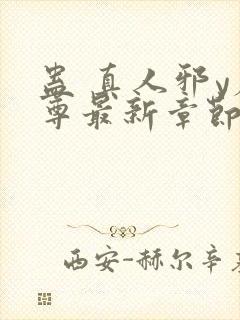 蛊 真人邪y
尊最新章节
西安-赫尔辛